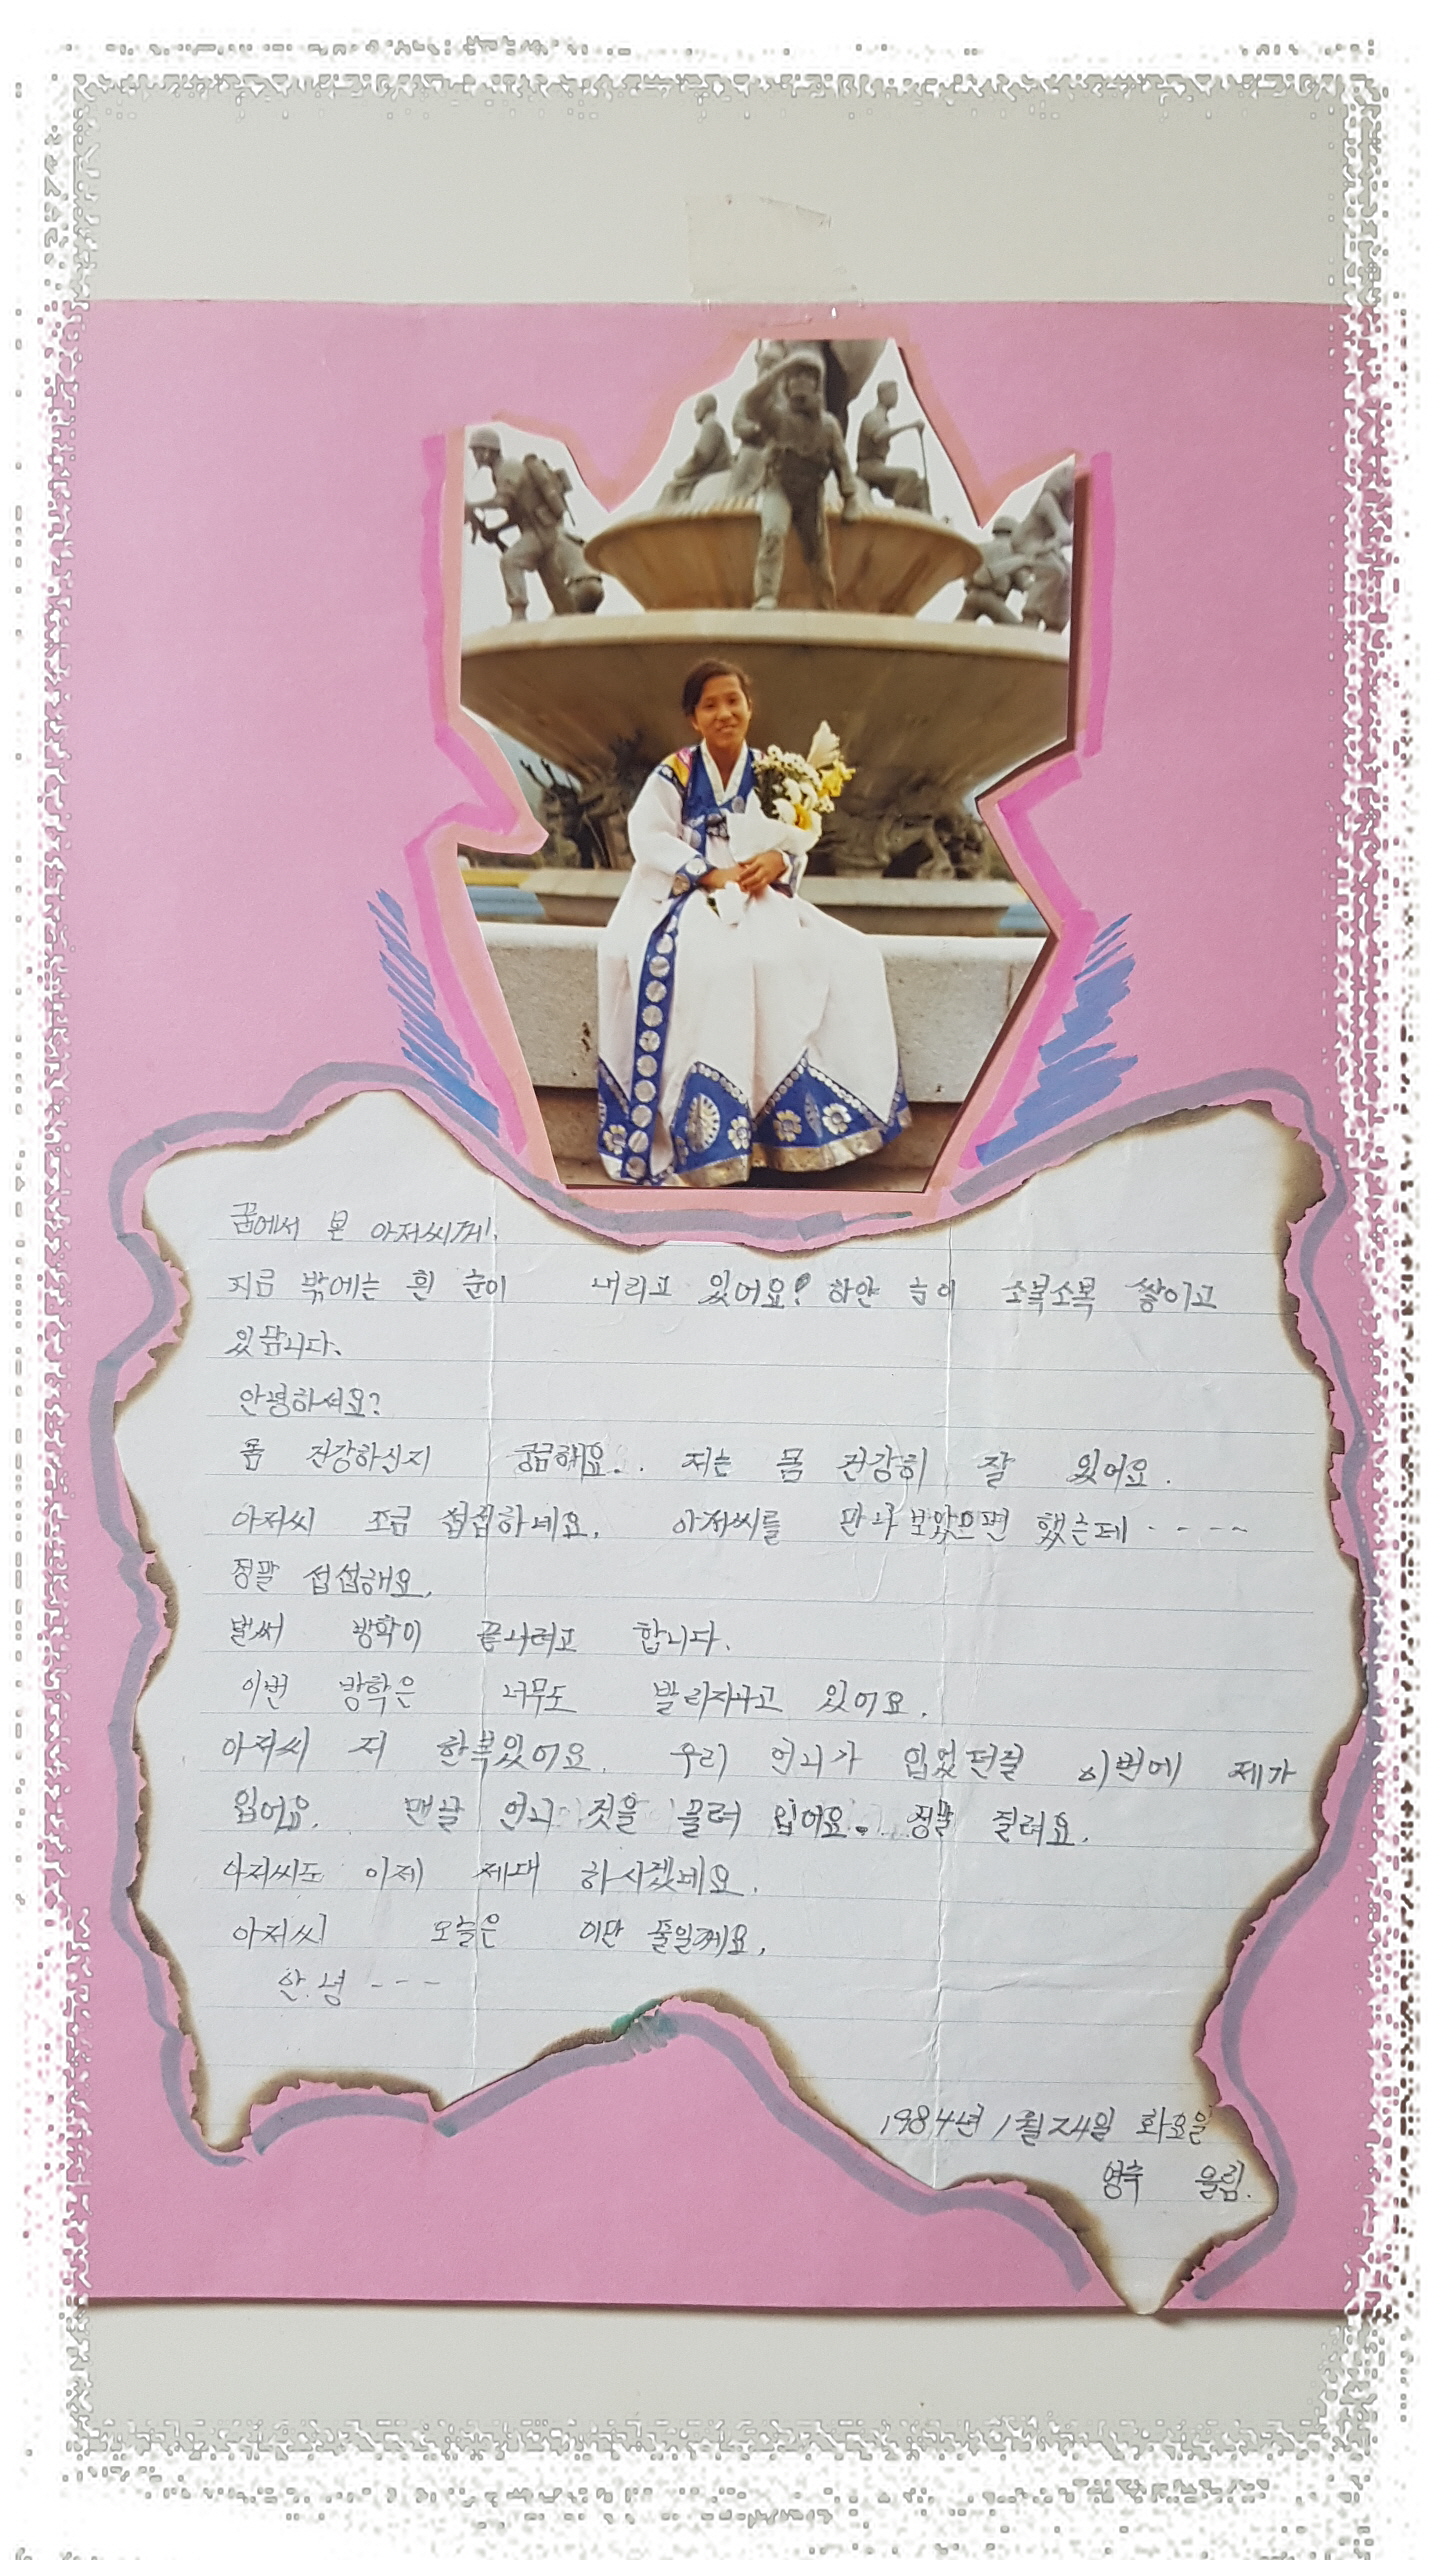 꿈에서 본 아저씨께.
지금 밖에는 흰 눈이 내리고 있어요! 하얀 눈이 소복소복 쌓이고
있답니다.
안녕하세요?
몸 건강하신지 궁금해요.. 저는 몸 건강히 잘 있어요.
아저씨 조금 섭섭하네요. 아저씨를 만나 보았으면 했는데 - - - -
정말 섭섭해요.
벌써 방학이 끝나려고 합니다.
이번 방학은 너무도 빨리지나고 있어요.
아저씨 저 한복있어요. 우리 언니가 입었던걸 이번에 제가
입어요. 맨날 언니 것을 물려 입어요. 정말 질려요.
아저씨도 이제 제대 하시겠네요.
아저씨 오늘은 이만 줄일께요.
안.녕 - - -
1984년 1월 24일 화요일
영추 올림.